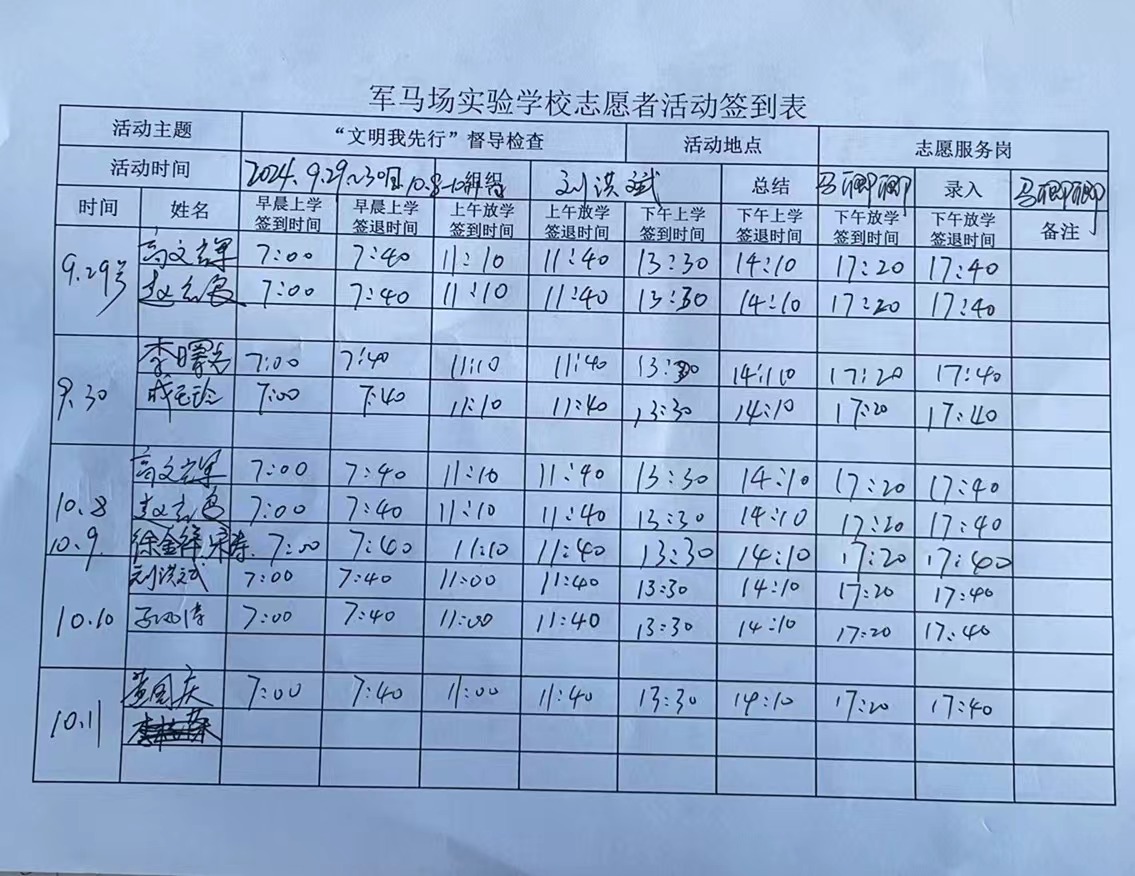 军马场实验学校志愿者活动签到表
活动主题 “文明我先行”督导检查 活动地点 志愿服务岗
活动时间 2024.9.29~30日 10.8- 刘洪斌 总结 马卿卿 录入 马卿卿
时间 姓名 早晨上学签到时间 早晨上学签退时间 上午放学签到时间 上午放学签退时间 下午上学签到时间 下午上学签退时间 下午放学签到时间 下午放学签退时间 备注
9.29号 高文军 7:00 7:40 11:10 11:40 13:30 14:10 17:20 17:40
赵志勇 7:00 7:40 11:10 11:40 13:30 14:10 17:20 17:40
9.30 李曙光 7:00 7:40 11:10 11:40 13:30 14:10 17:20 17:40
7:00 7:40 11:10 11:40 13:30 14:10 17:20 17:40
10.8 高文军 7:00 7:40 11:10 11:40 13:30 14:10 17:20 17:40
赵志勇 7:00 7:40 11:10 11:40 13:30 14:10 17:20 17:40
10.9. 徐金锋 宋涛 7:00 7:40 11:10 11:40 13:30 14:10 17:20 17:40
刘洪斌 7:00 7:40 11:00 11:40 13:30 14:10 17:20 17:40
10.10 7:00 7:40 11:00 11:40 13:30 14:10 17:20 17:40
10.11 黄国庆 7:00 7:40 11:00 11:40 13:30 14:10 17:20 17:40